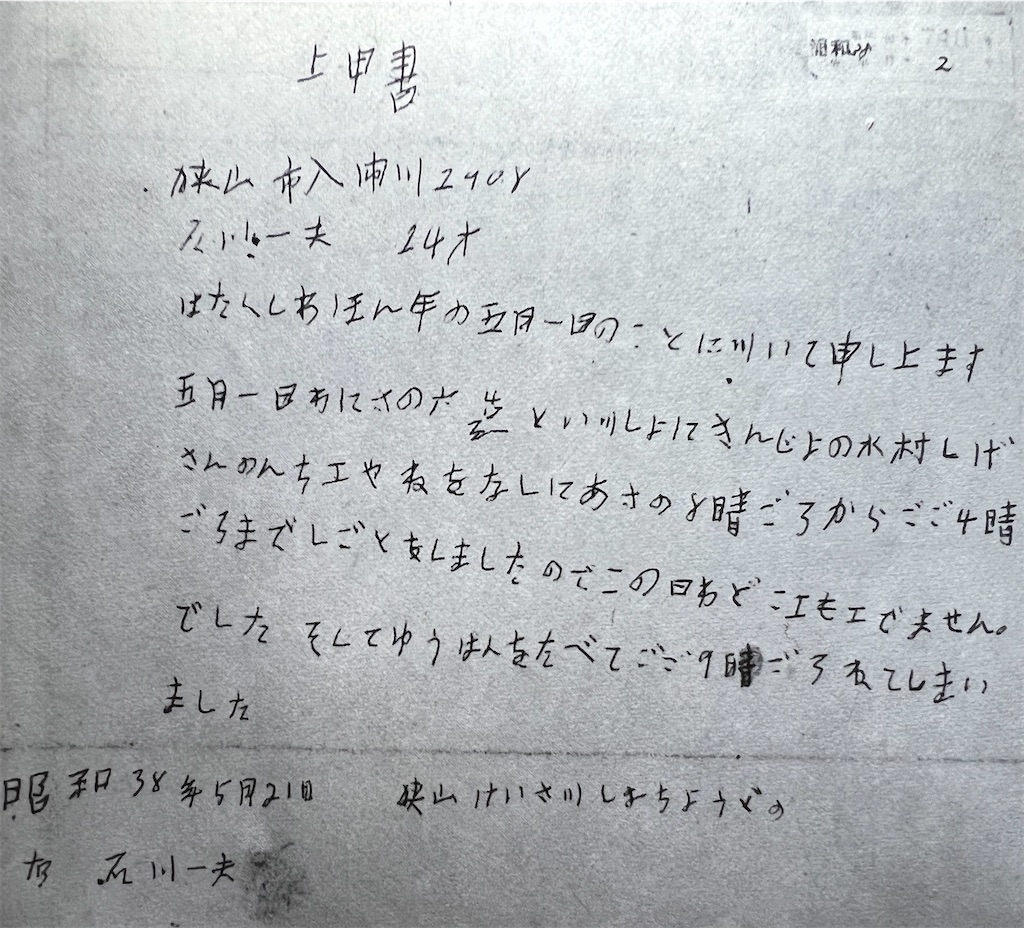 昭和38
2
上申書
狭山市入間川2908
石川一夫 24才
はたくしわほん年の五月一日のことに川いて申し上ます
五月一日わにさの六造とい川しよにきんじよの水村しげ
さんのんち工やねをなしにあさの8晴ごろからごご4晴
ごろまでしごとをしましたのでこの日わどこ工も工でません。
でした そしてゆうはんをたべてごご9晴ごろねてしまい
ました
昭和38年5月21日 狭山けいさ川しよちようどの
右 石川一夫